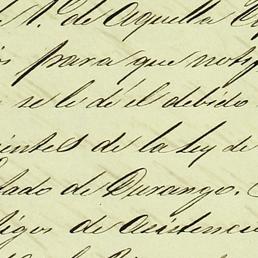 N. de Aquella
para que notif
se le dé el debido
de la Ley de
tado de Durango.
tigos de Asistencia